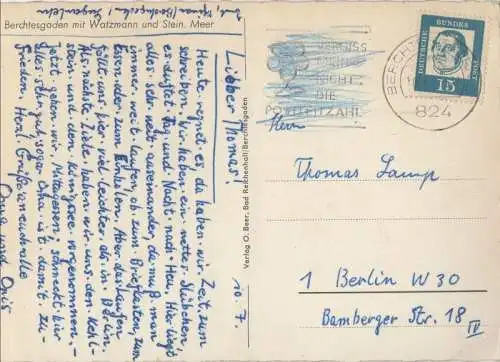 Berchtesgaden mit Watzmann und Stein. Meer
10. 7.
Lieber Thomas!
Heute regnet es, da haben wir Zeit zum
schreiben. Wir haben ein nettes Stübchen,
es duftet Tag und Nacht nach Heu. Hier liegt
alles sehr weit auseinander, da muß man
immer weit laufen, ob zum Briefkasten zum
Essen oder zum Einholen. Aber das Laufen
fällt uns hier viel leichter als in
Als nächste Ziele haben wir uns den Kehl-
stein und den Königssee vorgenommen.
Jetzt gehen wir Mittagessen, schmeckt hier
alles sehr gut sogar Oma ist damit zu-
frieden. Herzl. Grüße an euch alle
Oma und Opis
Verlag O. Beer, Bad Reichenhall/Berchtesgaden
VERGISS
MEIN
NICHT
DIE
POSTLEITZAHL
BERCHT
824
DEUTSCHE BUNDESPOST
15
Herrn
Thomas Lamp
1 Berlin W 30
Bamberger Str. 18 IV